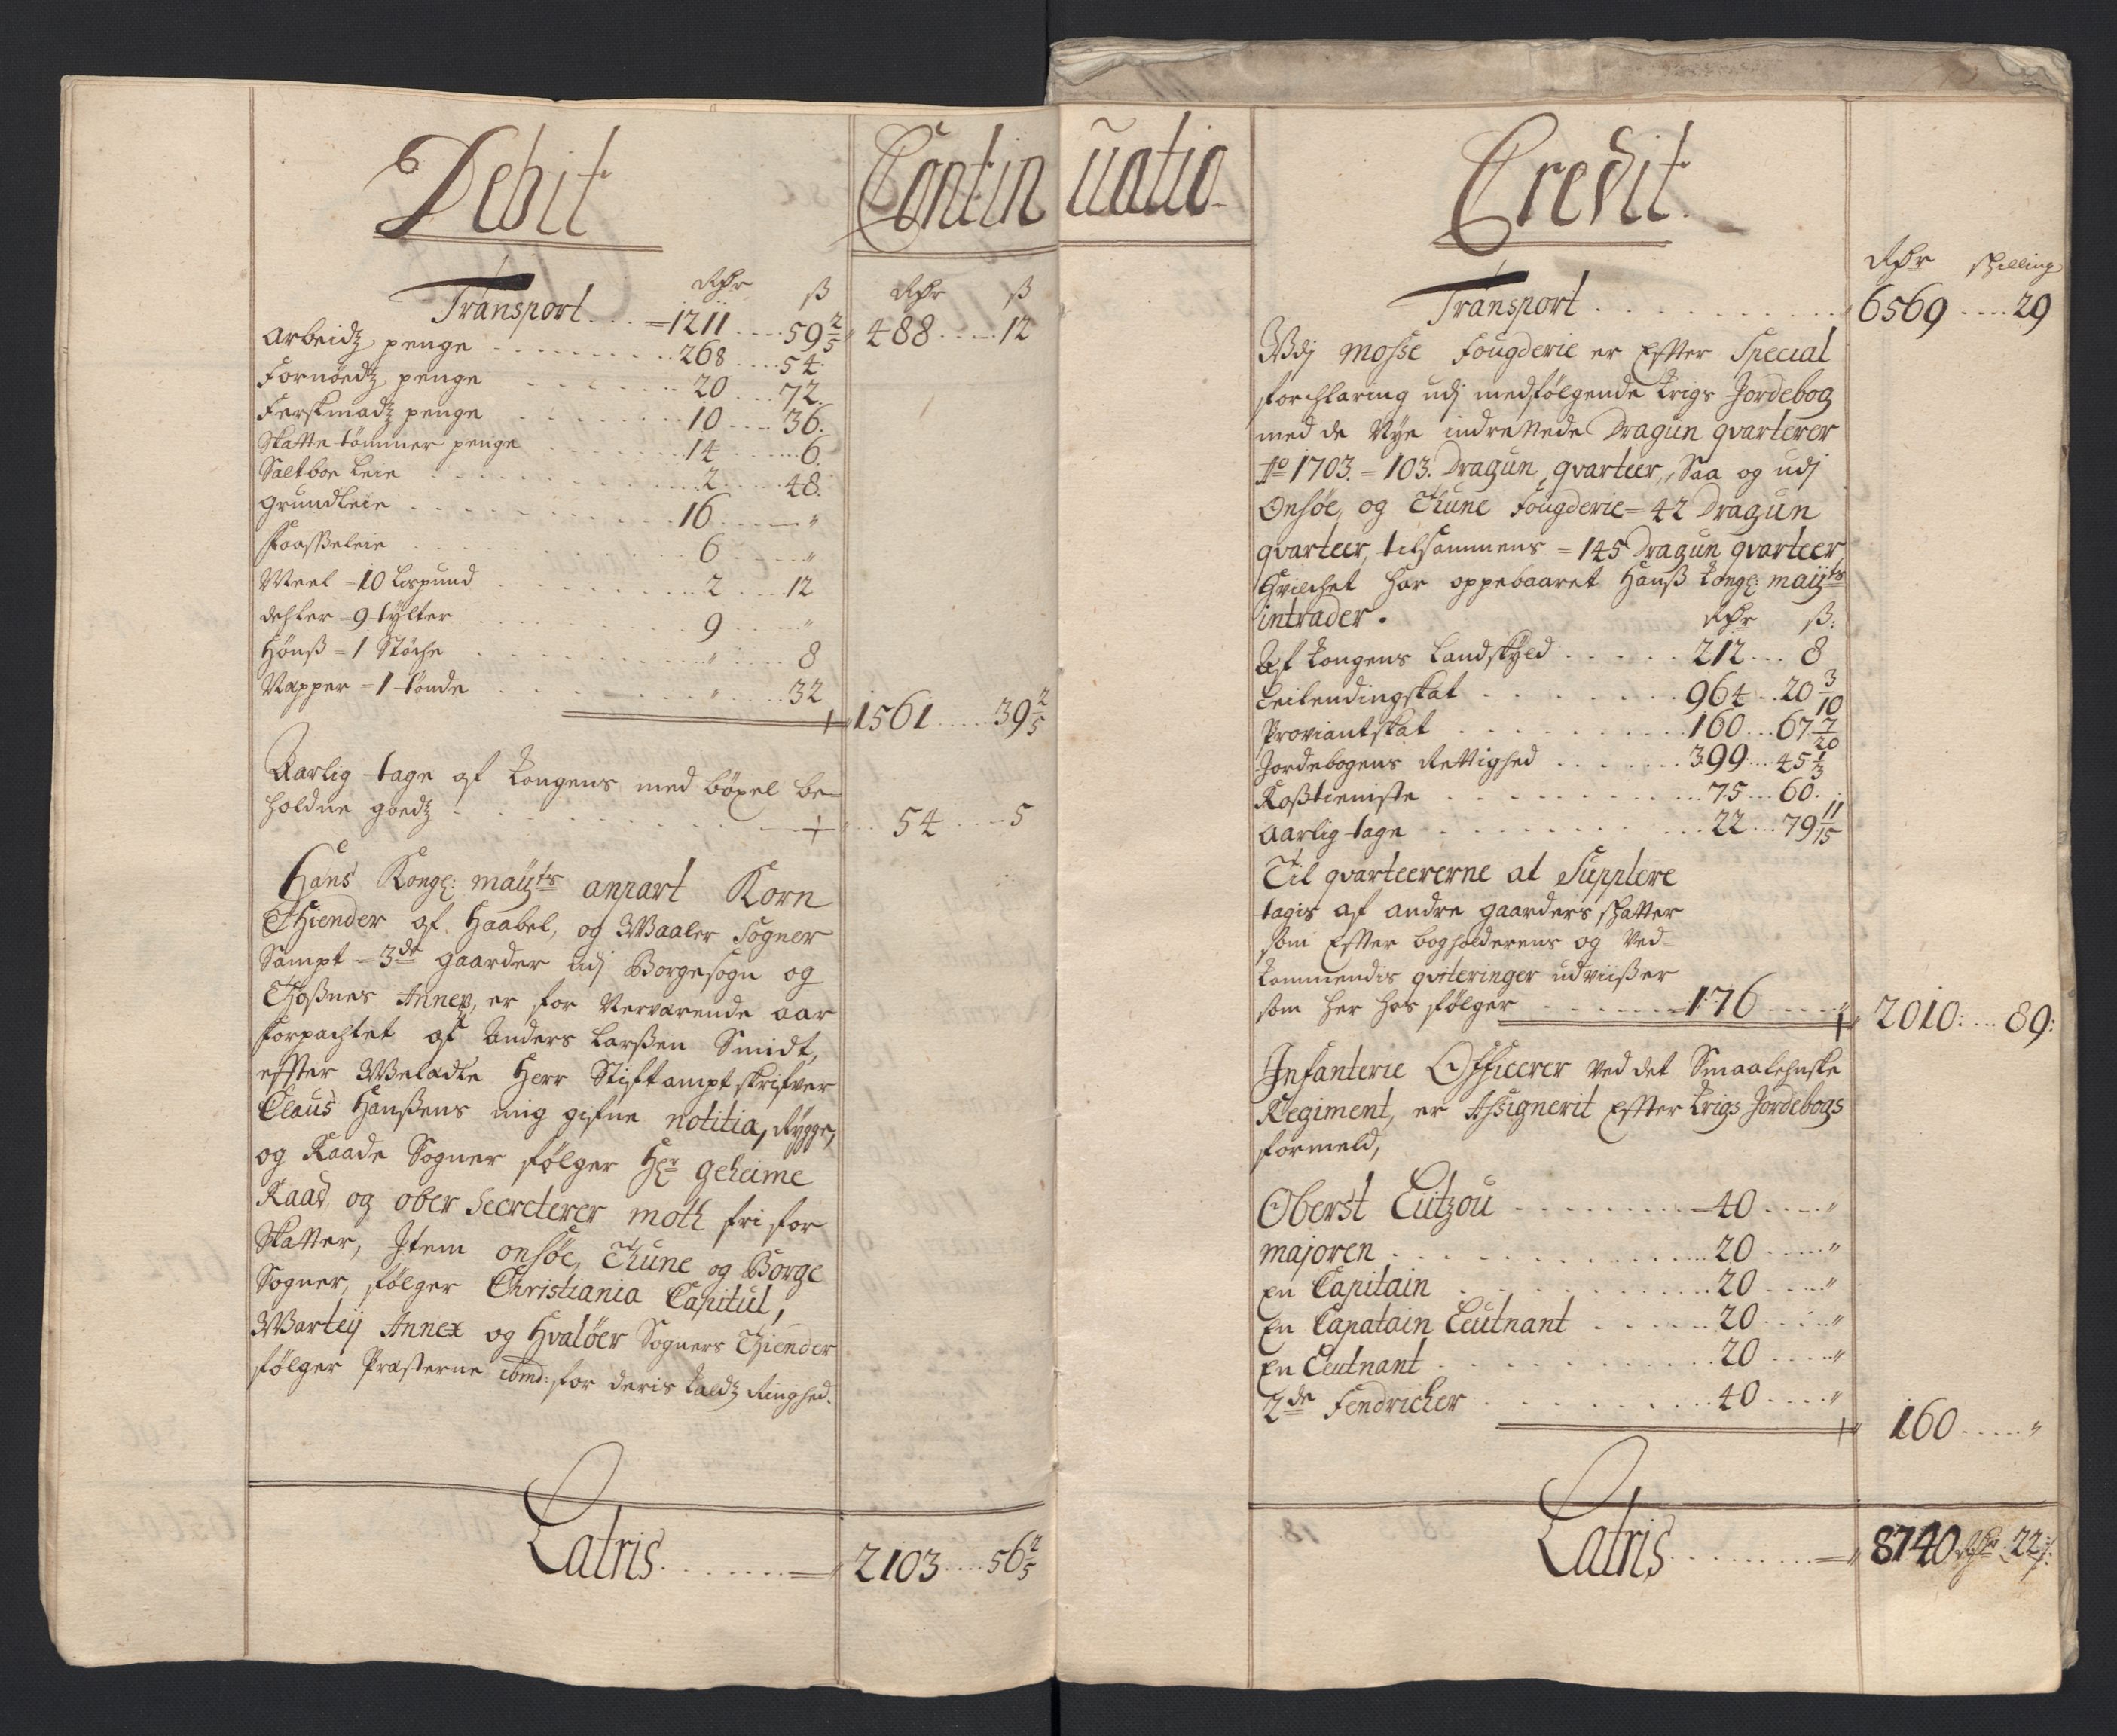 Debit
Continuatio
Rdr ß Rdr ß
Transport . . . = 1211 . . . . 59 2/5 488 . . . . 12
Arbeidz penge . . . . . . . . . 268 . . . . 54.
Fornöedz penge . . . . . . . 20 . . . 72.
Ferskmadz penge . . . . . . . 10 . . . . 36.
Skatte tömmer penge . . . . . . . 14 . . . . . 6.
Saltboe Leie . . . . . . . . . . . 2 . . . . . 48.
Grundleie . . . . . . . . . . . 16 . . . . — "
Faaßeleie . . . . . . . . . . . 6 . . . . "
Meel = 10 Lispund . . . . . . . . 2 . . . . 12
dehler = 9 tylter . . . . . . . . 9 . . . . "
Hönß = 1 Stöche . . . . . . . . . . " . . . . 8
Næpper = 1 tönde . . . . . . . . " . . . . 32
1561 . . . . . 39 2/5
Aarlig tage af Kongens med böxel be=
holdne goedz . . . . . . . . . . . 54 . . . . . 5
Hans Kongl: mayts anpart Korn
Thiender af Haabel, og Waaler Sogner
Sampt = 3de gaarder udj Borgesogn og
Thoßnes Annex, er for Nerværende aar
forpachtet af Anders Larßen Smidt,
effter Welædle Herr Stiftamptskrifver
Claus Hanßens mig gifne notitia, Rygge,
og Raade Sogner følger Hr Geheime
Raad, og ober Secreterer moth fri for
Skatter, Item onsöe, Thune og Borge
Sogner, følger Christiania Capitul,
Warteij Annex og Hvalöer Sogners Thiender
følger Præsterne ibmd: for deris Kaldz Rettighed.
Latris . . . . . . . . = 2103 . . . . 56 2/5
Credit.
Rdr skilling
Transport . . . . . . . . . . . 6569 . . . . 29
Udj Mosse Fougderie er Effter Special
forchlaring udj medfølgende Krigs Jordebog
med de Nye indrettede Dragun qvarterer
Ao 1703. = 103. Dragun qvarteer, Saa og udj
Onsöe, og Thune Fougderie = 42 Dragun
qvarteer, tilsammens = 145 Dragun qvarteer
Hvilchet har oppebaaret Hanß Kongl: mayts
intrader. Rdr ß:
Af Kongens Landskyld . . . . . 212 . . . 8
Leilendingskat . . . . . . . . 964 . . 20 3/10
Proviantskat . . . . . . . . . . 160 . . . 67 7/20
Jordebogens Rettighed . . . . . . . 399 . . . 45 1/3
Roßtieniste . . . . . . . . . . . 75 . . . 60.
Aarlig tage . . . . . . . . . . 22 . . . 79 11/15
Til qvarteererne at Supplere
tagis af andre gaarders skatter
som Effter bogholderens og Ved=
kommendis qviteringer udviißer
som her hos følger . . . . . . = 176 . . . . " 2010: . . . 89:
Infanterie Officerer ved det Smaalehnske
Regiment, er Assignerit Effter Krigs Jordebogs
formeld,
Oberst Lützou . . . . . . . . = 40 . . . . "
majoren . . . . . . . . . . . . 20 . . . . "
En Capitain . . . . . . . . . . 20 . . . . "
En Capatain Leutnant . . . . . 20 . . . . "
En Leutnant . . . . . . . . . . . 20 . . . . "
2de Fendricher . . . . . . . . . . 40 . . . . "
160 . . . . . "
Latris . . . . . . . . . = 8740 Rdr 22 ß: